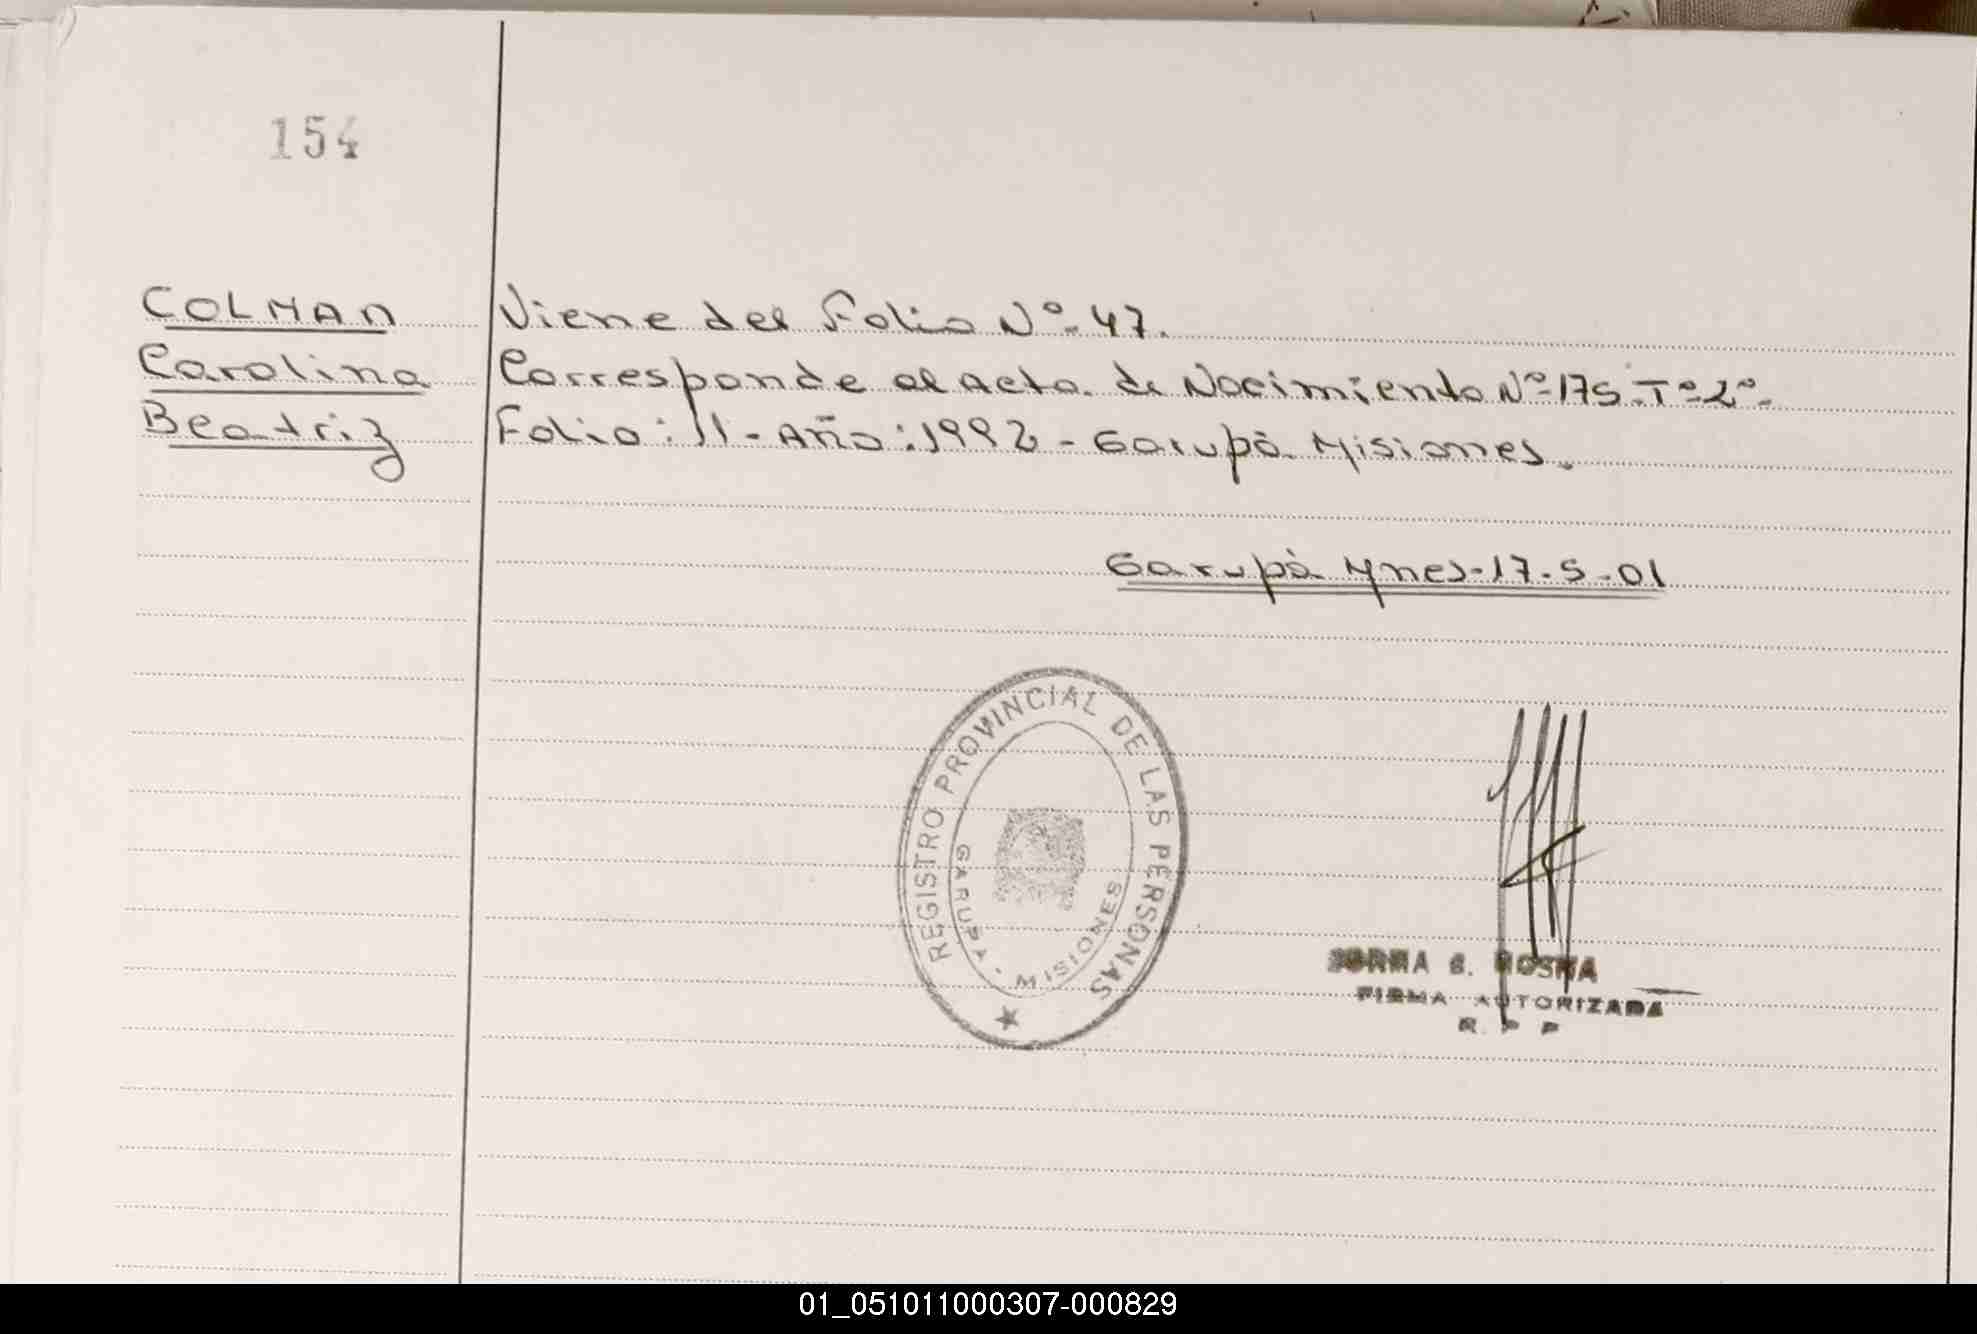 154
COLMAN
Carolina
Beatriz
Viene del Folio Nº 47.
Corresponde al acta de Nacimiento Nº 175 - Tº 2º -
Folio: 11 - Año: 1992 - Garupá Misiones.
Garupá Mnes - 17 - 5 - 01
REGISTRO PROVINCIAL DE LAS PERSONAS
GARUPA - MISIONES
FIRMA AUTORIZADA
R P P
01_051011000307-000829